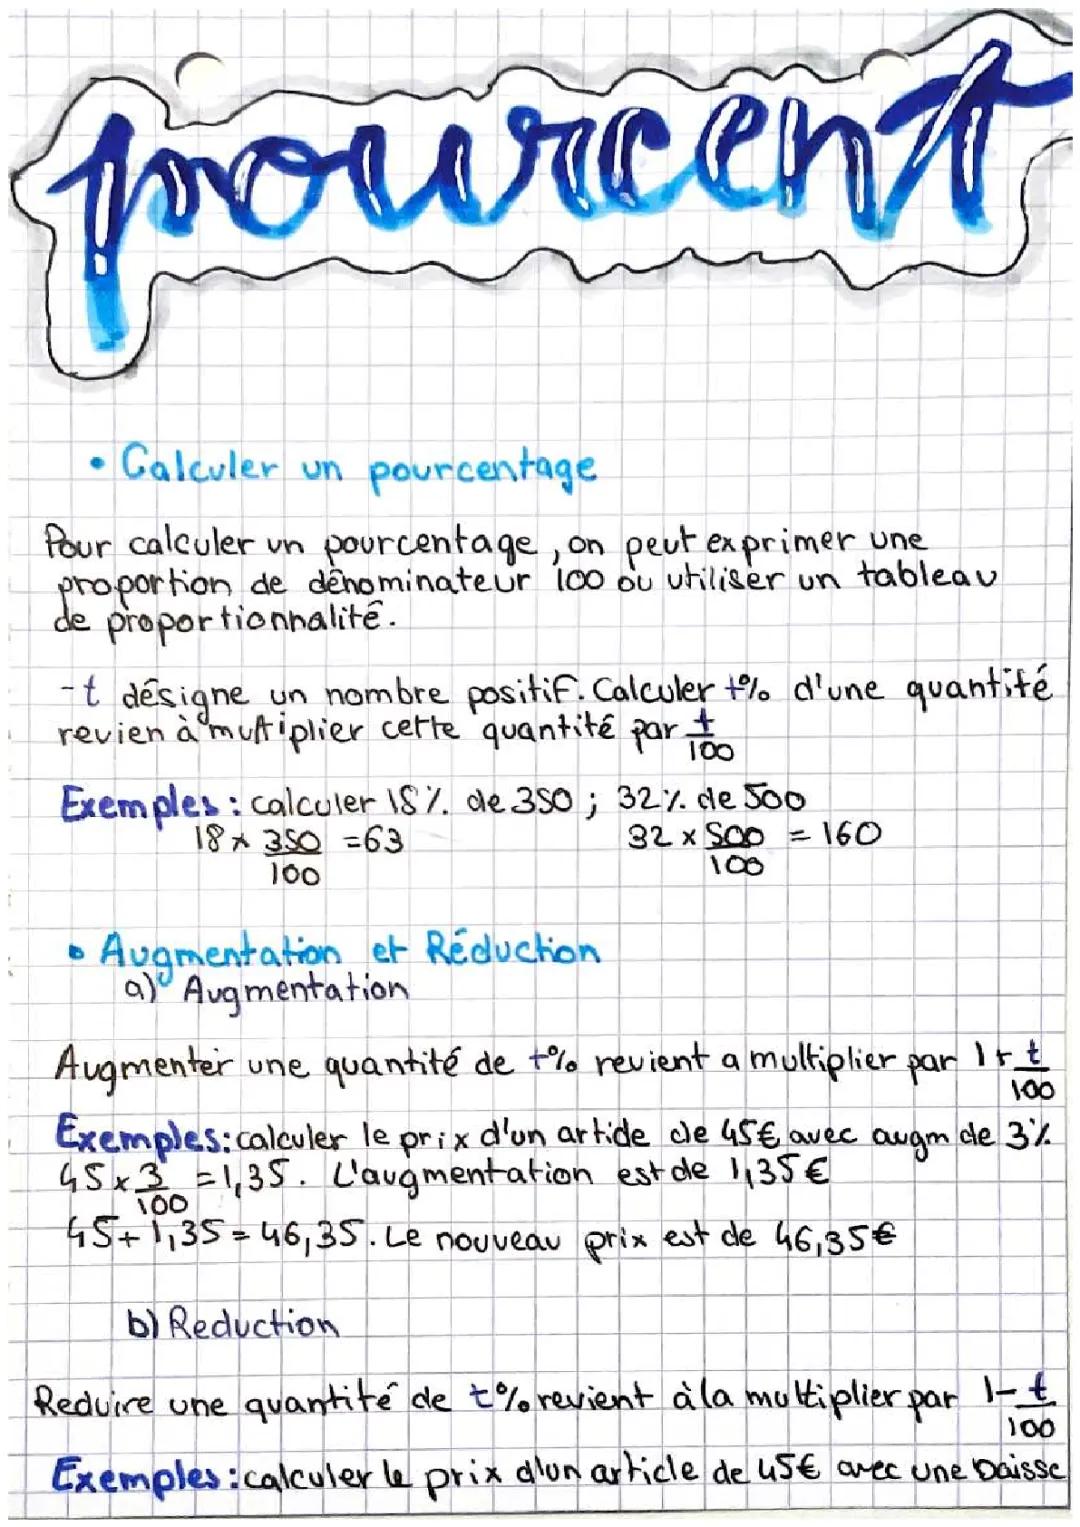 pourcent
• Calculer un pourcentage
Pour calculer un pourcentage, on peut exprimer une
proportion de dénominateur 100 ou utiliser un tableau
de proportionnalité.
-t désigne un nombre positif. Calculer t% d'une quantité
revien à multiplier cette quantité par t/100
Exemples : calculer 18% de 350 ; 32% de 500
18 × 350/100 = 63 32 × 500/100 = 160
• Augmentation et Réduction
a) Augmentation
Augmenter une quantité de t% revient a multiplier par 1+t/100
Exemples: calculer le prix d'un article de 45€ avec augm de 3%
45 × 3/100 = 1,35. L'augmentation est de 1,35€
45 + 1,35 = 46,35. Le nouveau prix est de 46,35€
b) Reduction
Reduire une quantité de t% revient à la multiplier par 1-t/100
Exemples : calculer le prix d'un article de 45€ avec une baisse